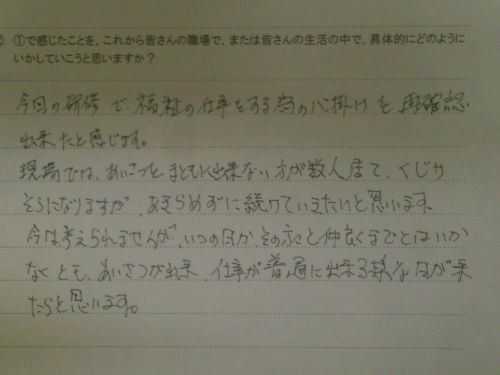 ① で感じたことを、これから皆さんの職場で、または皆さんの生活の中で、具体的にどのように
いかしていこうと思いますか？
今日の研修で、福祉の仕事をする為の心掛けを再確認
出来たと感じます。
現場では、あいさつをまともに出来ない方が数人居て、くじけ
そうになりますが、あきらめずに続けていきたいと思います。
今は考えられませんが、いつの日か、その方々と仲良くまでとはいか
なくとも、あいさつが出来、仕事が普通に出来る様な日が来
たらと思います。